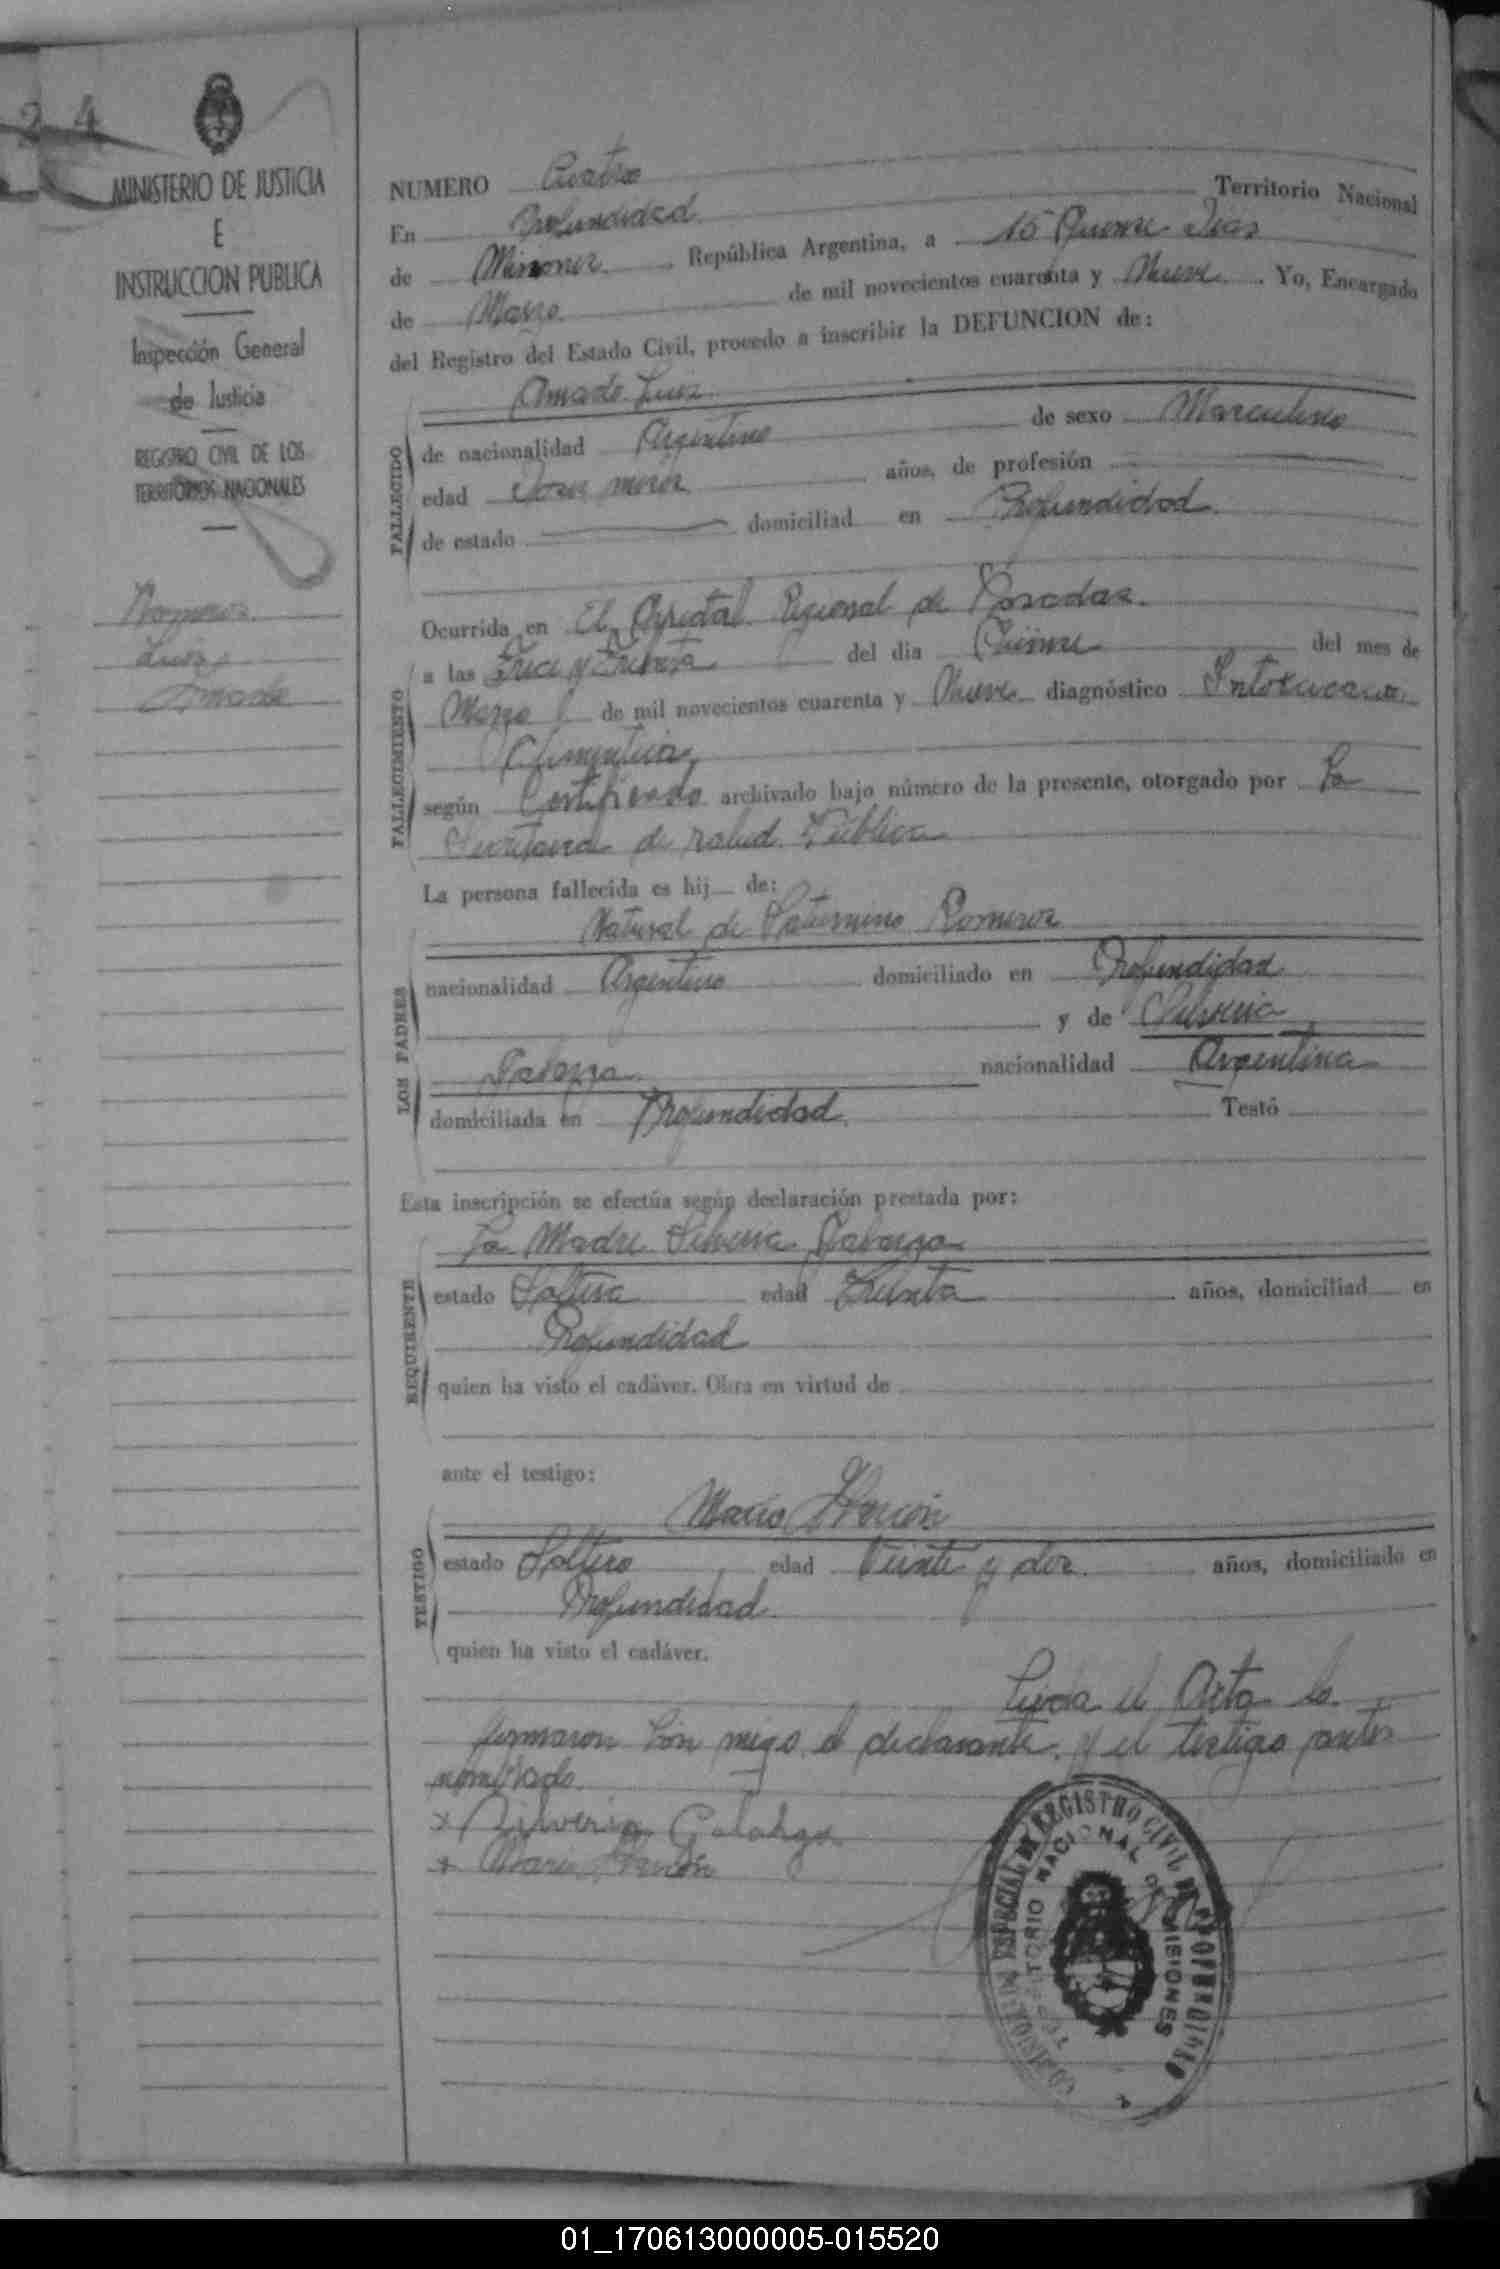 2 4
MINISTERIO DE JUSTICIA
E
INSTRUCCION PUBLICA
Inspección General
de Justicia
REGISTRO CIVIL DE LOS
TERRITORIOS NACIONALES
Romeros
Luis
Amado
NUMERO Cuatro
En Profundidad Territorio Nacional
de Misiones República Argentina, a 15 Quinse Dias
de Marzo de mil novecientos cuarenta y Nueve. Yo, Encargado
del Registro del Estado Civil, procedo a inscribir la DEFUNCION de:
Amado Luis
FALLECIDO
de nacionalidad Argentino de sexo Masculino
edad Doce meses años, de profesión
de estado domiciliad en Profundidad
FALLECIMIENTO
Ocurrida en El Ospital Regional de Posadas.
a las Trece y Treinta del dia Quinse del mes de
Marzo de mil novecientos cuarenta y Nueve diagnóstico
Alimenticia
según Certificado archivado bajo número de la presente, otorgado por La
Secretaria de salud Pública
LOS PADRES
La persona fallecida es hij de:
Natural de Saturnino Romeros
nacionalidad Argentino domiciliado en Profundidad
y de Silveria
Galarza nacionalidad Argentina
domiciliada en Profundidad Testó
Esta inscripción se efectúa según declaración prestada por:
REQUIRENTE
La Madre Silveria Galarza
estado Soltera edad Treinta años, domiciliad en
Profundidad
quien ha visto el cadáver. Obra en virtud de
ante el testigo:
TESTIGO
Mario
estado Soltero edad Veinte y dos años, domiciliado en
Profundidad
quien ha visto el cadáver.
Leida el Acta lo
firmaron Con migo el declarante y el testigo antes
nombrado.
x Silveria Galarza
x Mario
COMISION ESPECIAL DE REGISTRO CIVIL DE PROFUNDIDAD
TERRITORIO NACIONAL DE MISIONES
01_170613000005-015520